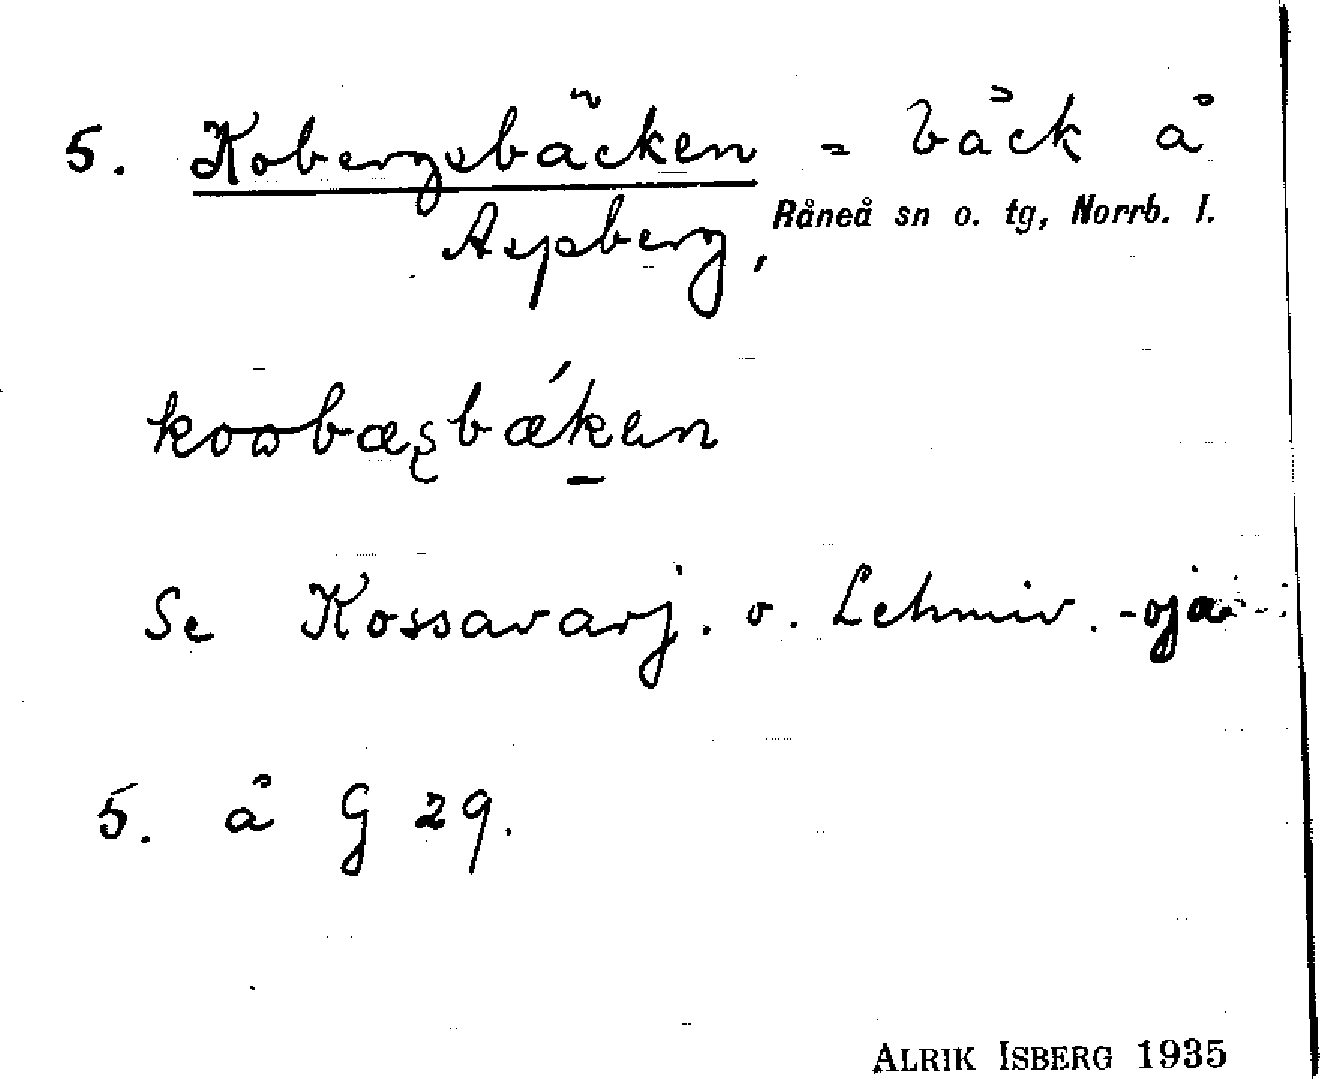 5. Kobergsbäcken = bäck å
Råneå sn o. tg, Norrb. l.
Aspberg,
Se Kossavarj. o. Lehmiv. -oja
5. å G 29.
ALRIK ISBERG 1935